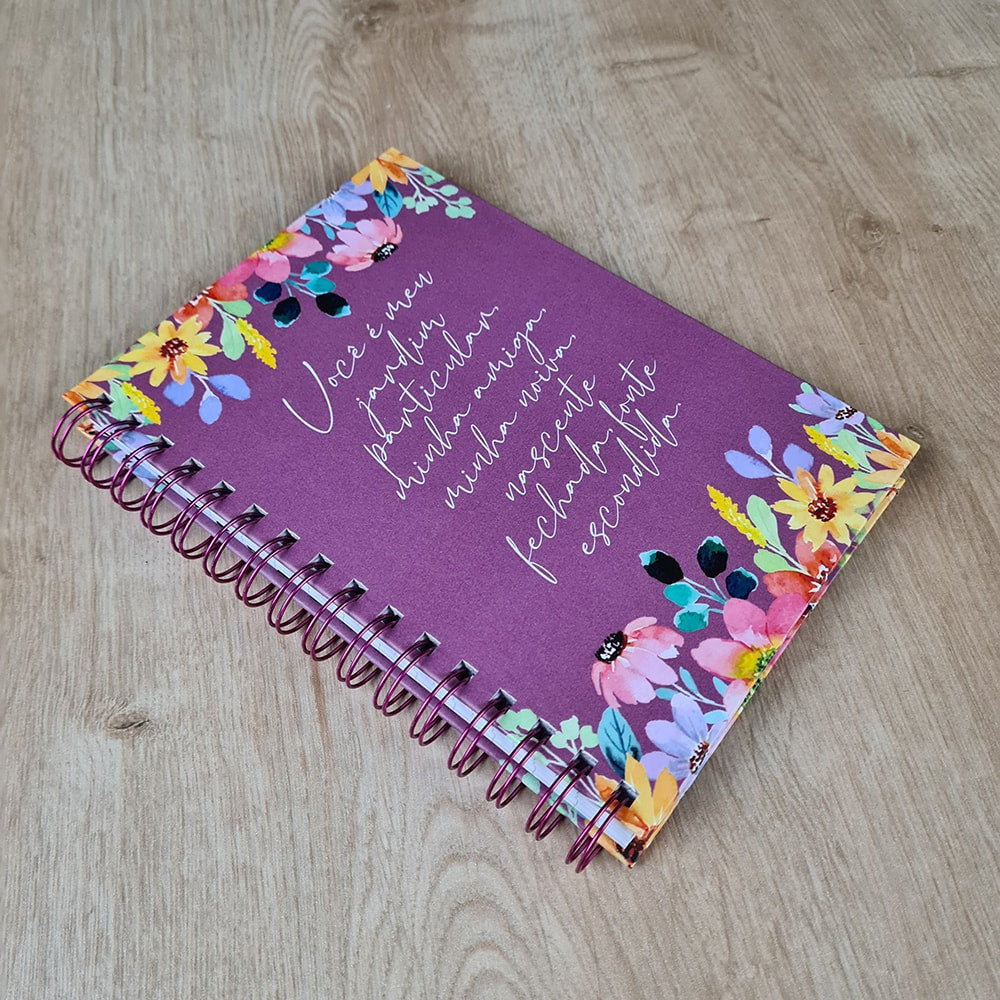 Você é meu
jardim
particular.
minha amiga.
minha noiva.
nascente
fechada, fonte
escondida.